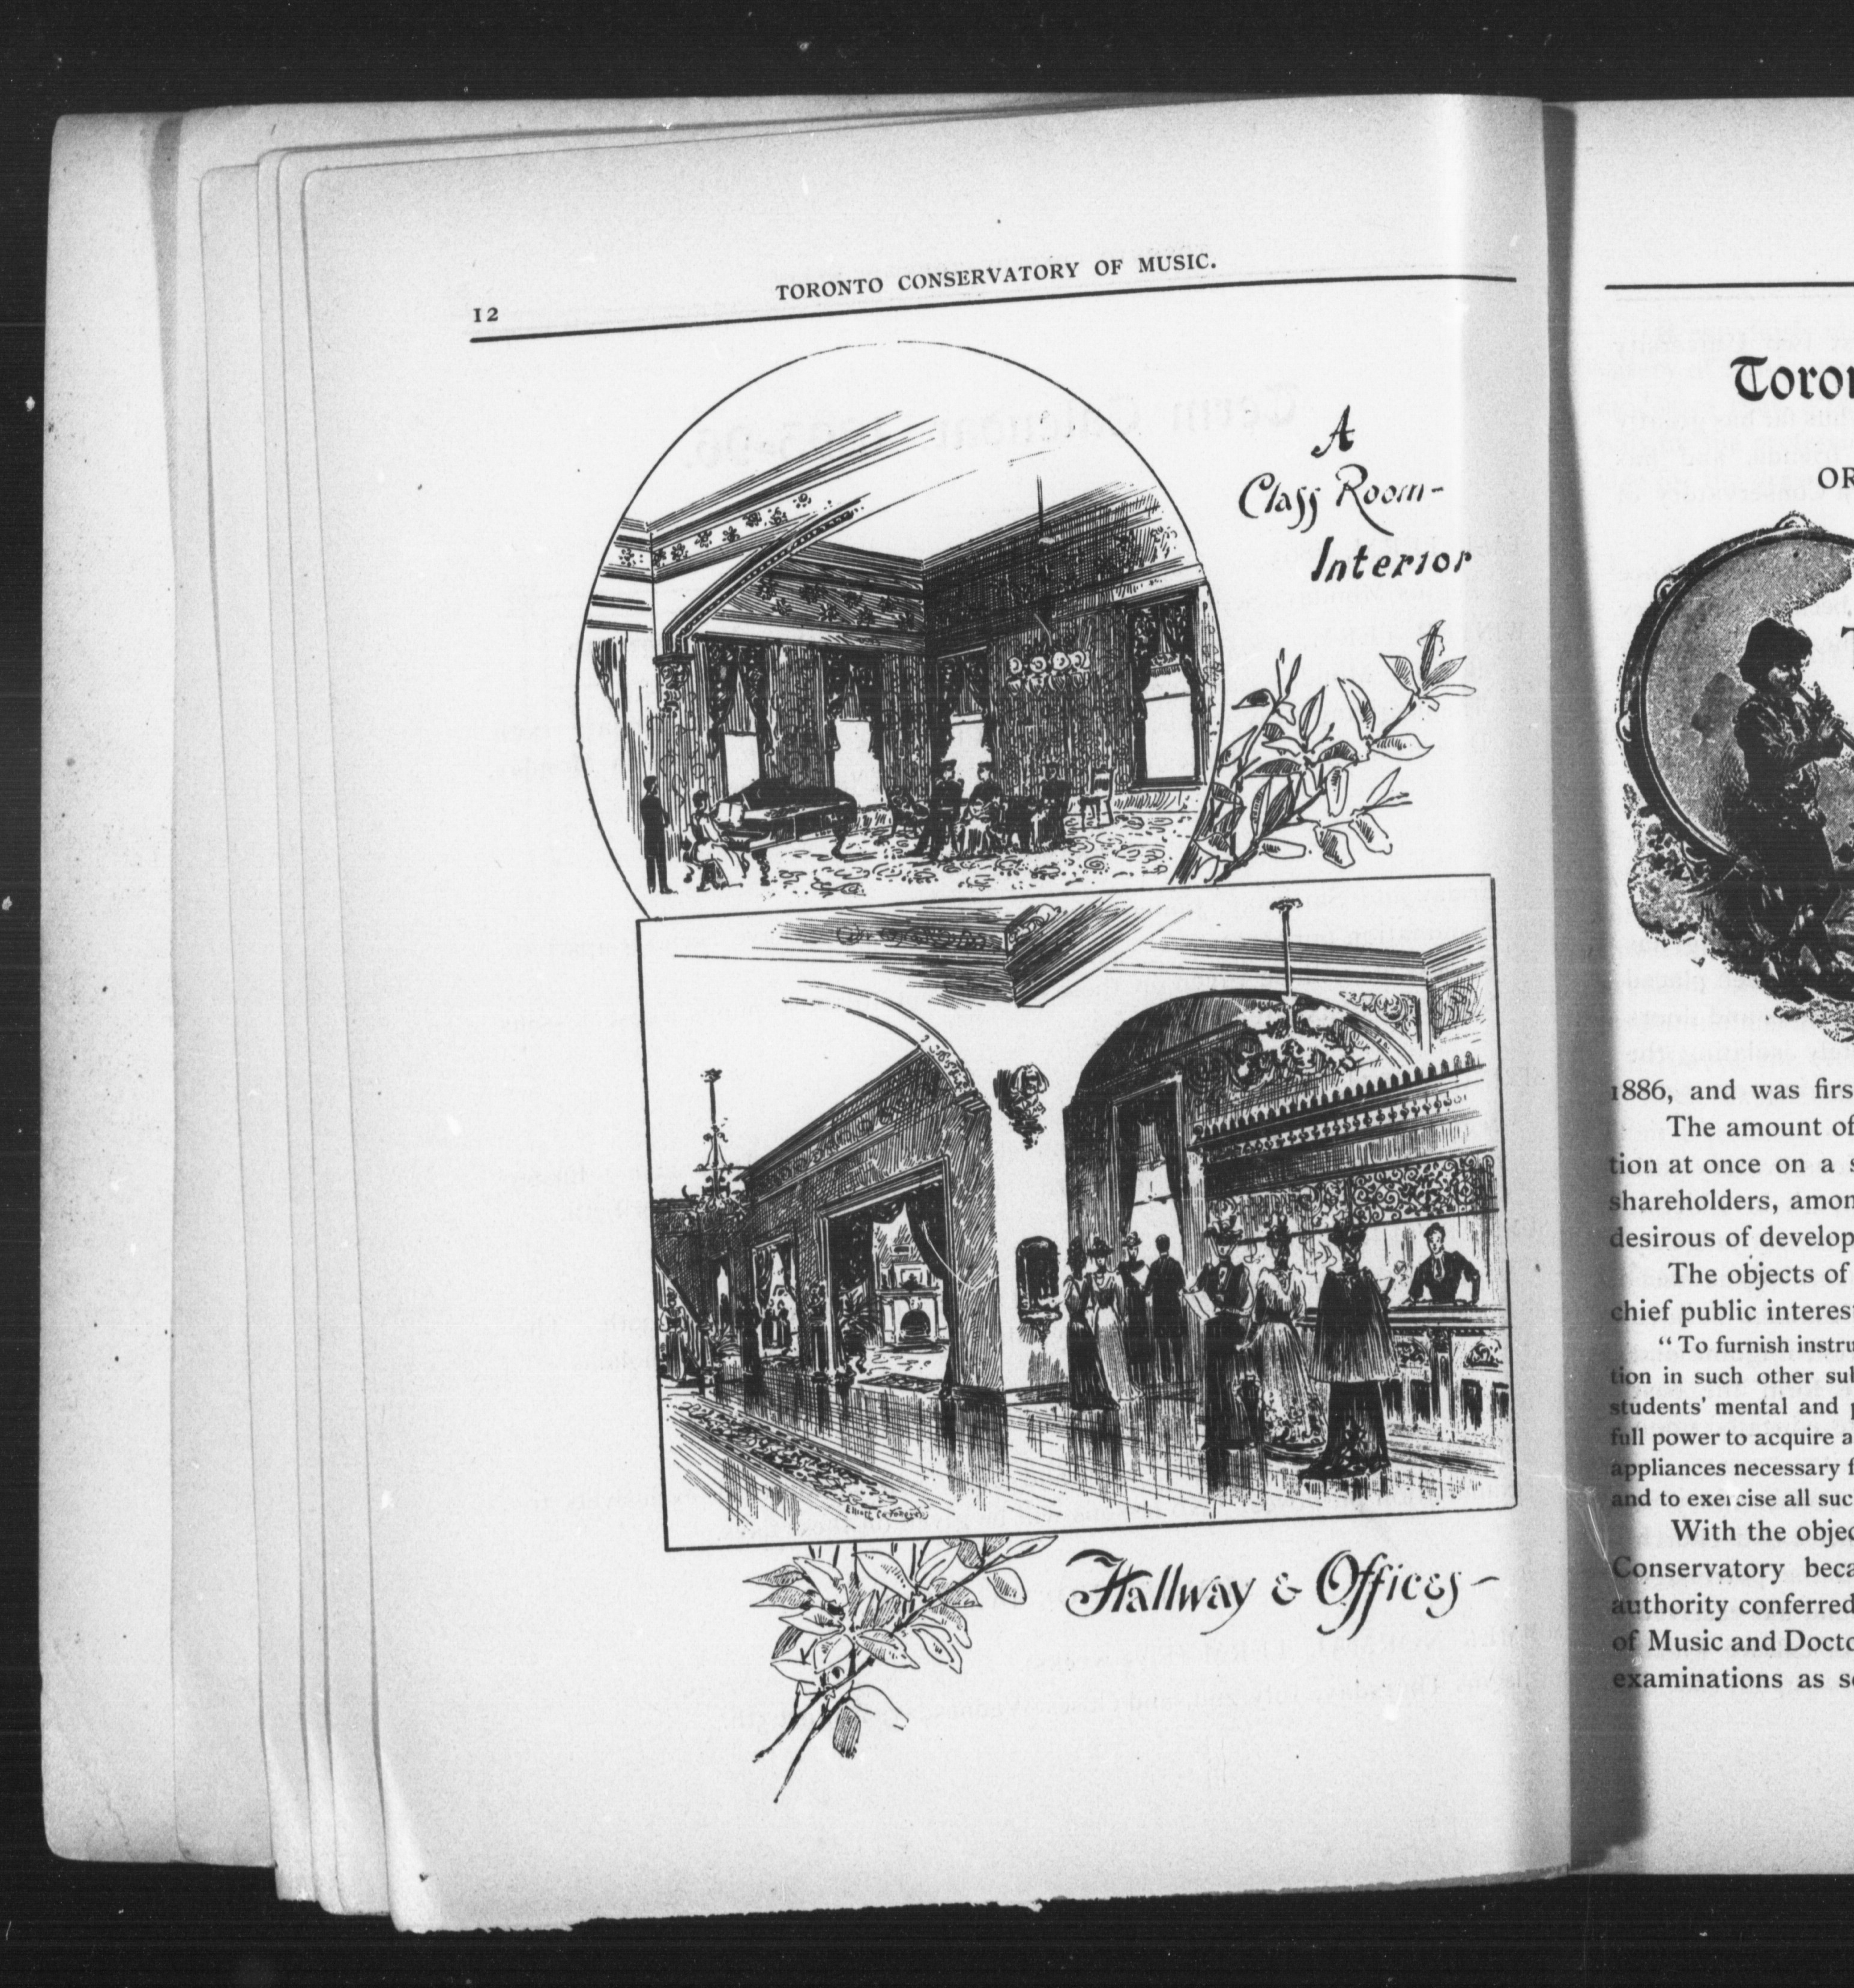 12
TORONTO CONSERVATORY OF MUSIC.
A
Class Room-
Interior
Hallway & Offices-
OR
1886, and was firs
The amount of
tion at once on a s
shareholders, amon
desirous of develop
The objects of
chief public interes
“To furnish instru
tion in such other sub
students' mental and p
full power to acquire a
appliances necessary f
and to exercise all suc
With the objec
Conservatory beca
authority conferred
of Music and Docto
examinations as so